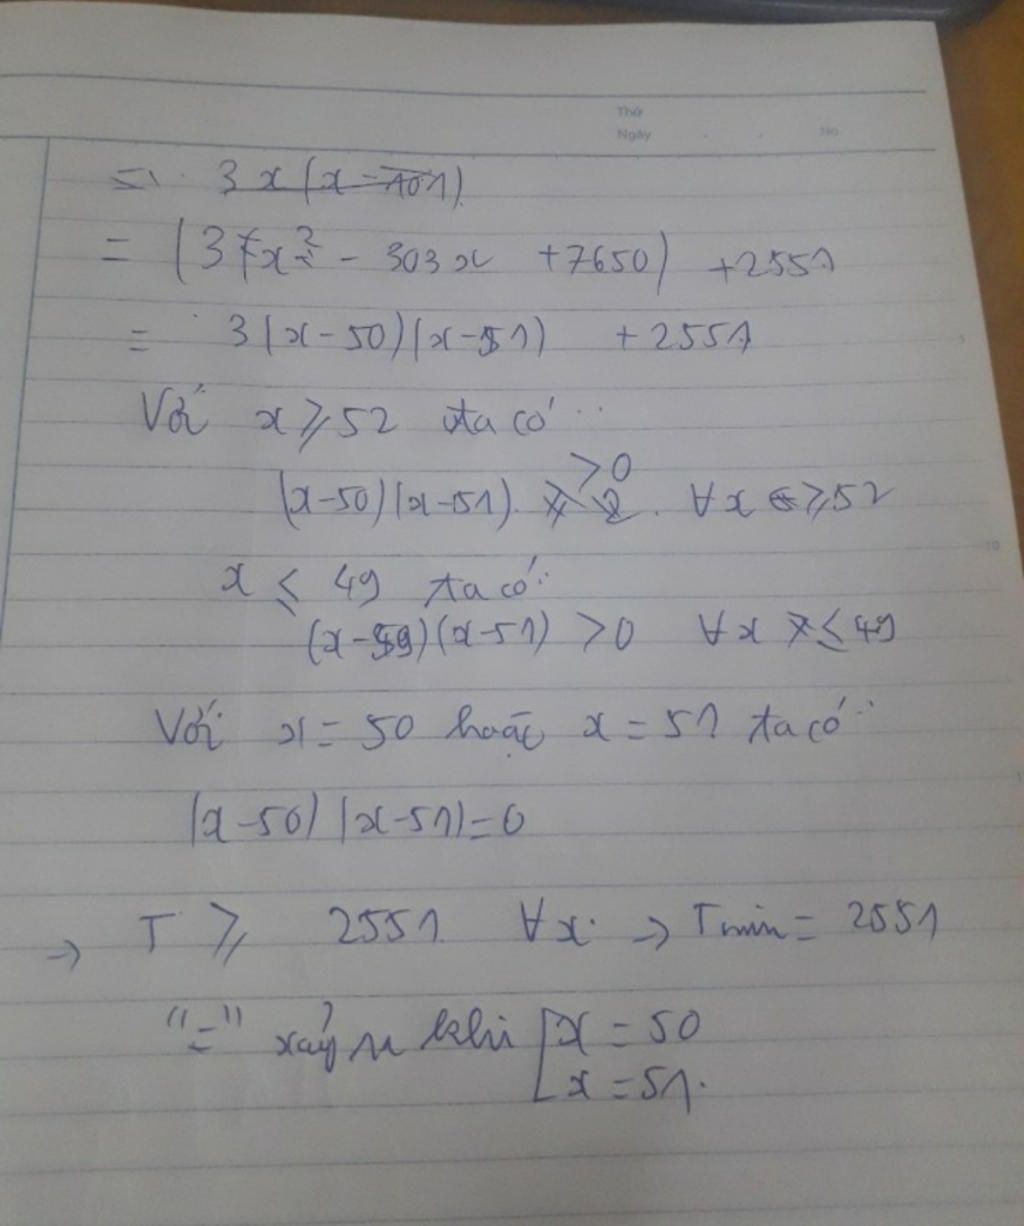 Thứ
Ngày No
3x(x-101)
= (3x² - 303x + 7650) + 2551
= 3(x-50)(x-51) + 2551
Với x ⩾ 52 ta có:
(x-50)(x-51) > 0 ∀x ⩾ 52
x ⩽ 49 ta có:
(x-59)(x-51) > 0 ∀x ⩽ 49
Với x = 50 hoặc x = 51 ta có:
(x-50)(x-51) = 0
→ T ⩾ 2551 ∀x. → Tmin = 2551
"=" xảy ra khi [x = 50
x = 51.